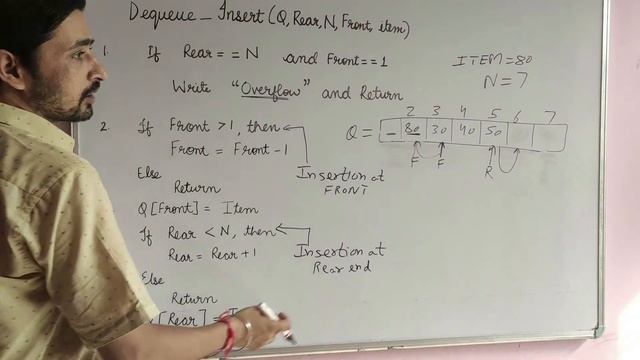 Dequeue_Insert(Q, Rear, N, Front, item)
1. If Rear == N and Front==1
Write "Overflow" and Return
2. If Front >1, then
Front = Front -1
Else
Return
Q[Front] = Item
If Rear < N, then
Rear = Rear +1
Else
Return
[Rear] =
Insertion at
FRONT
Insertion at
Rear end
ITEM=80
N=7
2 3 4 5 6 7
Q = _ 80 30 40 50
F F R